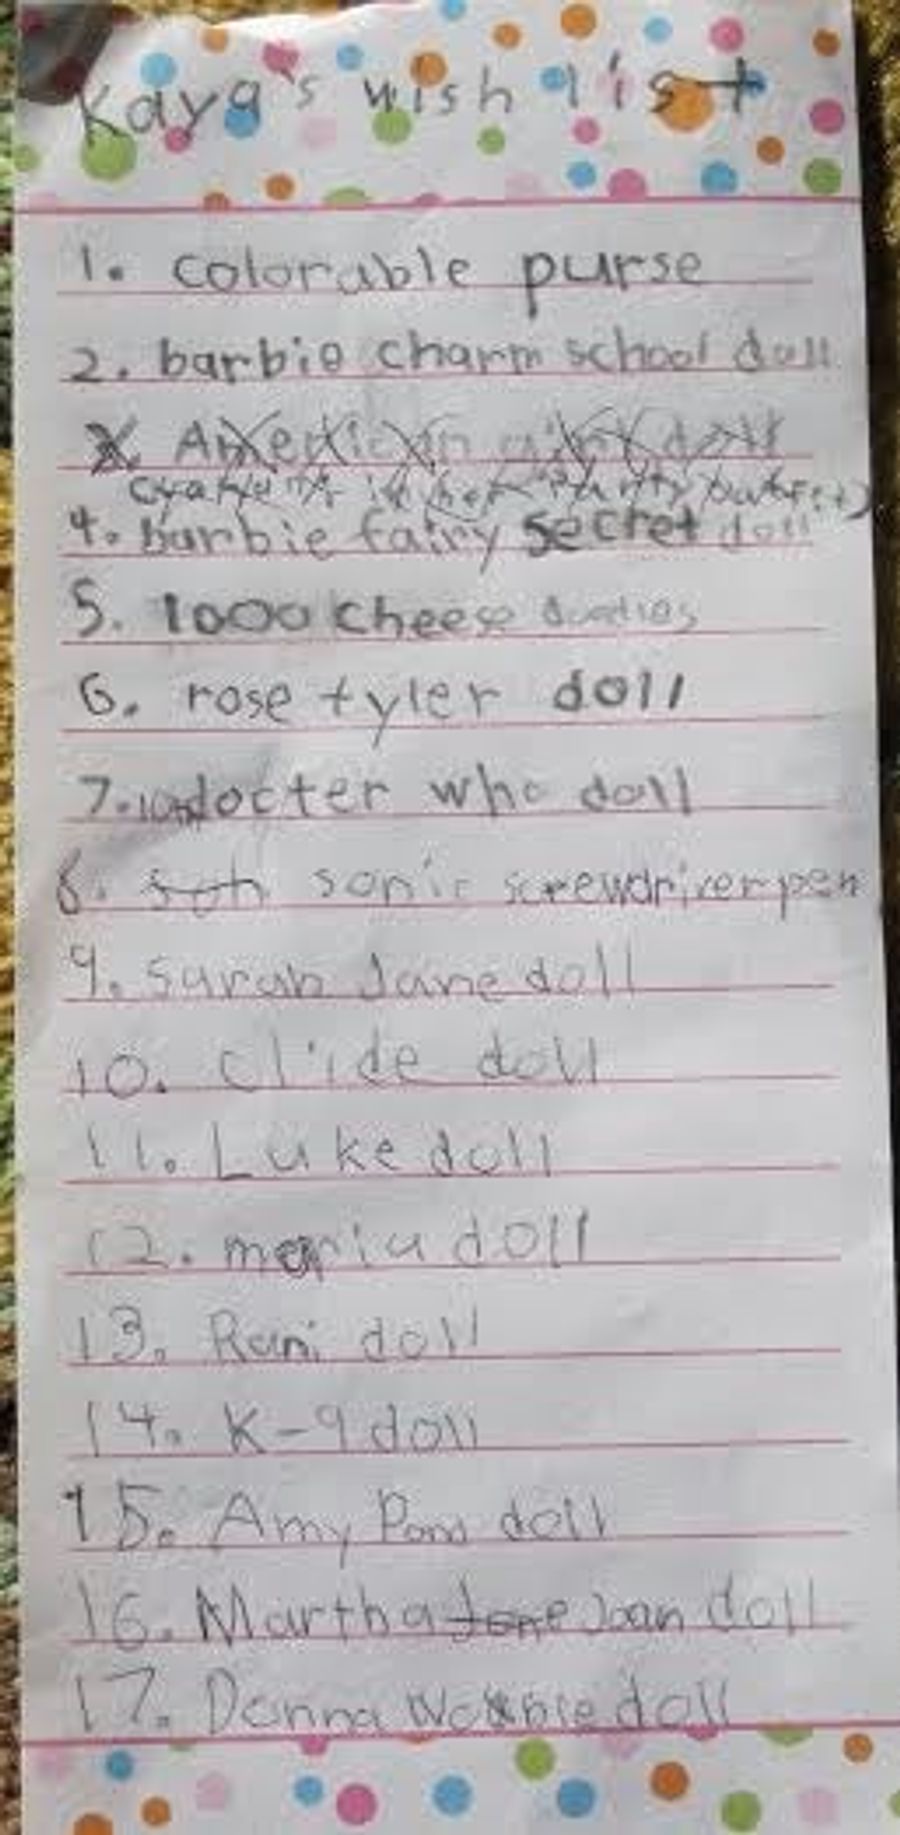 Kaya's wish list
1. colorable purse
2. barbie charm school doll
X American doll
4. barbie fairy secret doll
5. 1000 cheese
6. rose tyler doll
7. docter who doll
8. sonic screwdriver pen
9. Sarah Jane doll
10. Clide doll
11. Luke doll
12. maria doll
13. Rani doll
14. K-9 doll
15. Amy Pond doll
16. Martha Jone Joan doll
17. Donna doll